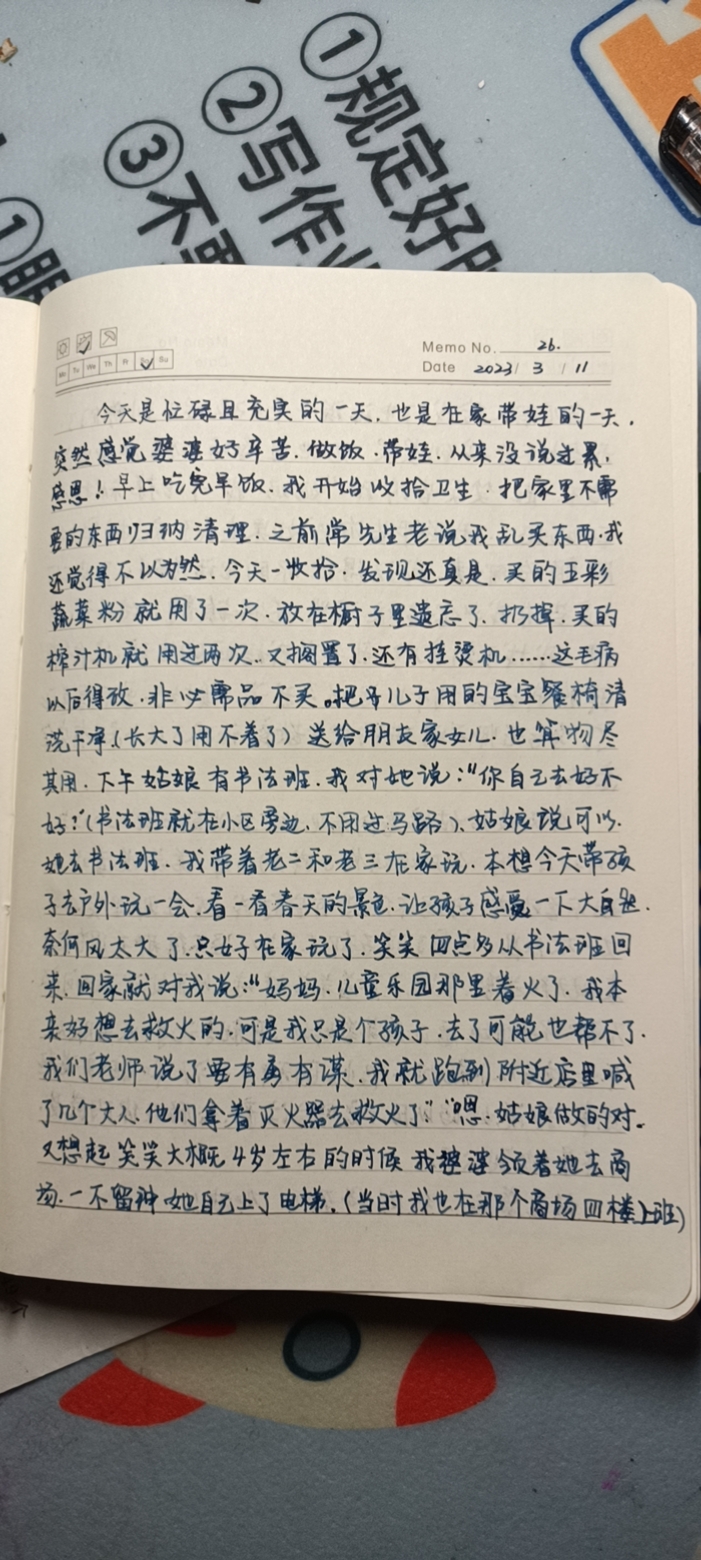 ①规定好
②写作业
③不要
①
Memo No. 26.
Mo Tu We Th Fr Sa Su
Date 2023/ 3 / 11
今天是忙碌且充实的一天,也是在家带娃的一天,
突然感觉婆婆好辛苦,做饭,带娃,从来没说过累,
感恩!早上吃完早饭,我开始收拾卫生,把家里不需
要的东西归纳清理,之前常先生老说我乱买东西,我
还觉得不以为然,今天一收拾,发现还真是,买的五彩
蔬菜粉就用了一次,放在橱子里遗忘了,扔掉,买的
榨汁机就用过两次,又搁置了,还有挂烫机……这毛病
以后得改,非必需品不买。把儿子用的宝宝餐椅清
洗干净,(长大了用不着了)送给朋友家女儿,也算物尽
其用,下午姑娘有书法班,我对她说:“你自己去好不
好?”(书法班就在小区旁边,不用过马路),姑娘说可以,
她去书法班,我带着老二和老三在家玩,本想今天带孩
子去户外玩一会,看一看春天的景色,让孩子感受一下大自然,
奈何风太大了,只好在家玩了,笑笑四点多从书法班回
来,回家就对我说:“妈妈,儿童乐园那里着火了,我本
来好想去救火的,可是我只是个孩子,去了可能也帮不了,
我们老师说了要有勇有谋,我就跑到附近店里喊
了几个大人,他们拿着灭火器去救火了”“嗯,姑娘做的对,
又想起笑笑大概4岁左右的时候我婆婆领着她去商
场,一不留神她自己上了电梯,(当时我也在那个商场四楼上班)